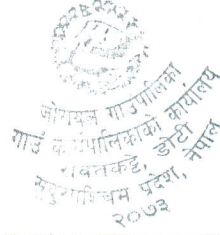 जोरायल गाउँपालिका
गाउँ कार्यपालिकाको कार्यालय
डोटी
सुदूरपश्चिम प्रदेश, नेपाल
२०७३